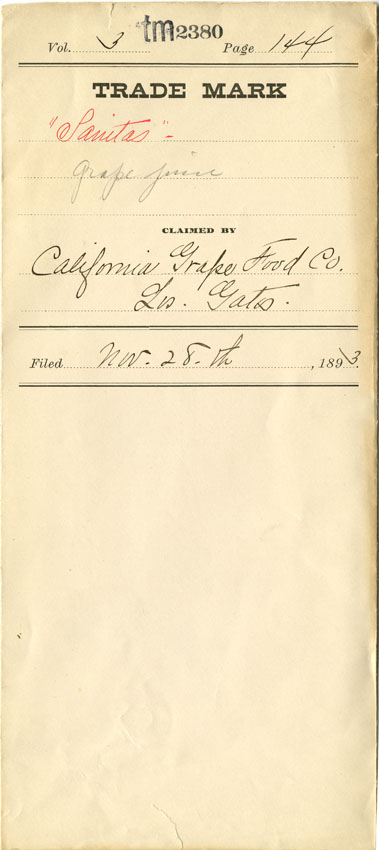 Vol. 3 tm2380 Page 144
TRADE MARK
"Sanitas" -
grape juice
CLAIMED BY
California Grape Food Co.
Los. Gatos.
Filed Nov. 28.th , 1893.